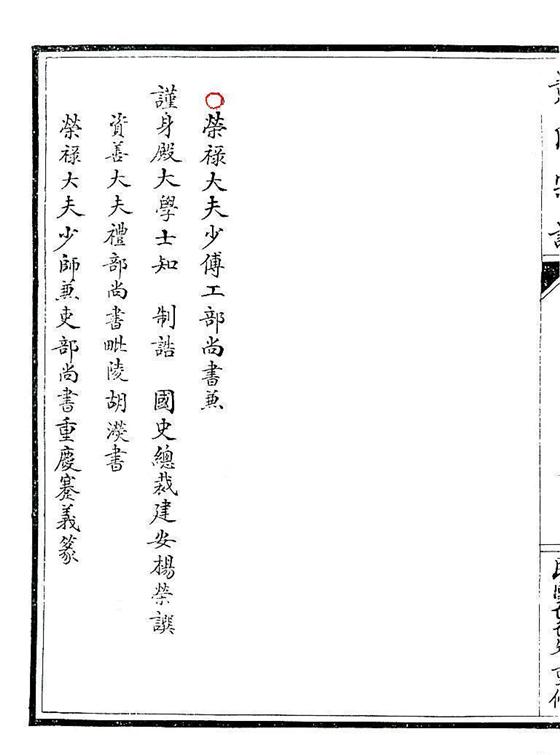 榮祿大夫少傅工部尚書兼
謹身殿大學士知 制誥 國史總裁建安楊榮譔
資善大夫禮部尚書毗陵胡濙書
榮祿大夫少師兼吏部尚書重慶蹇義篆